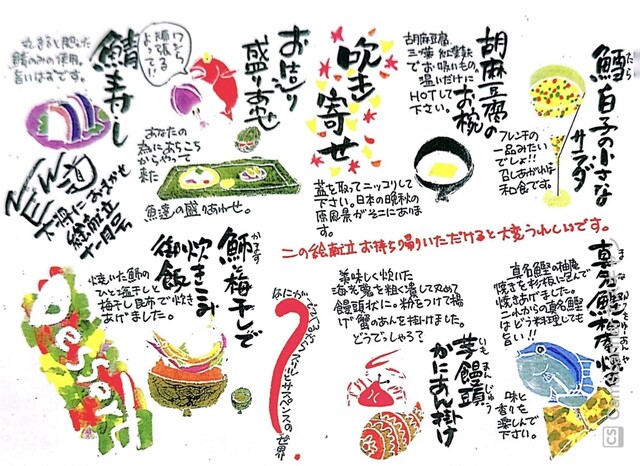 鱈白子の小さな
サラダ
たら
フレンチの
一品みたい
でしょ!!
召しあがれな
和食です。
胡麻豆腐の
お椀
胡麻豆腐
三葉 紅葉麩
でお吸いもの。
温いだけに
HOTして
下さい。
吹き寄せ
蓋を取ってニッコリして
下さい。日本の晩秋の
原風景がそこにあり
ます。
お造り
盛り合せ
ワシら
頑張る
よって!!
あなたの
為にあちこち
からやって
来た
魚達の盛りあわせ。
鯖寿し
丸まると肥えた
鯖のみの使用。
旨いはずです。
NEW
大将におまかせ
絵献立
十一月号
この絵献立お持ち帰りいただけると大変うれしいです。
真名鰹柚庵焼き
真名鰹の柚庵
焼きを杉板に包んで
焼きあげました。
これからの真名鰹
はどう料理しても
旨い!!
味と
香りを
楽しんで
下さい。
芋饅頭
かにあん掛け
いも まん じゅう
美味しく炊いた
海老芋を粗く潰して丸めて
饅頭状に。粉をつけて揚
げ蟹のあんを掛けました。
どうでっしゃろ?
なにが
でてくるやらスイーツサスペンスの世界!
?
鰤と梅干しで
炊きこみ
御飯
焼いた鰤の
ひと塩干しと
梅干し昆布で炊き
あげました。
Dessert
CS